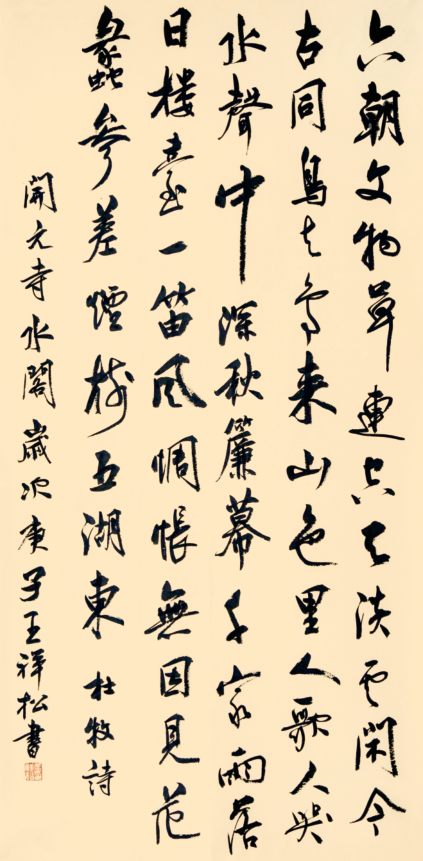 六朝文物草連空天淡雲閑今
古同鳥去鳥来山色里人歌人哭
水聲中深秋簾幕千家雨落
日樓臺一笛風惆悵無因見范
蠡參差煙樹五湖東 杜牧詩
開元寺水閣歲次庚子王祥松書